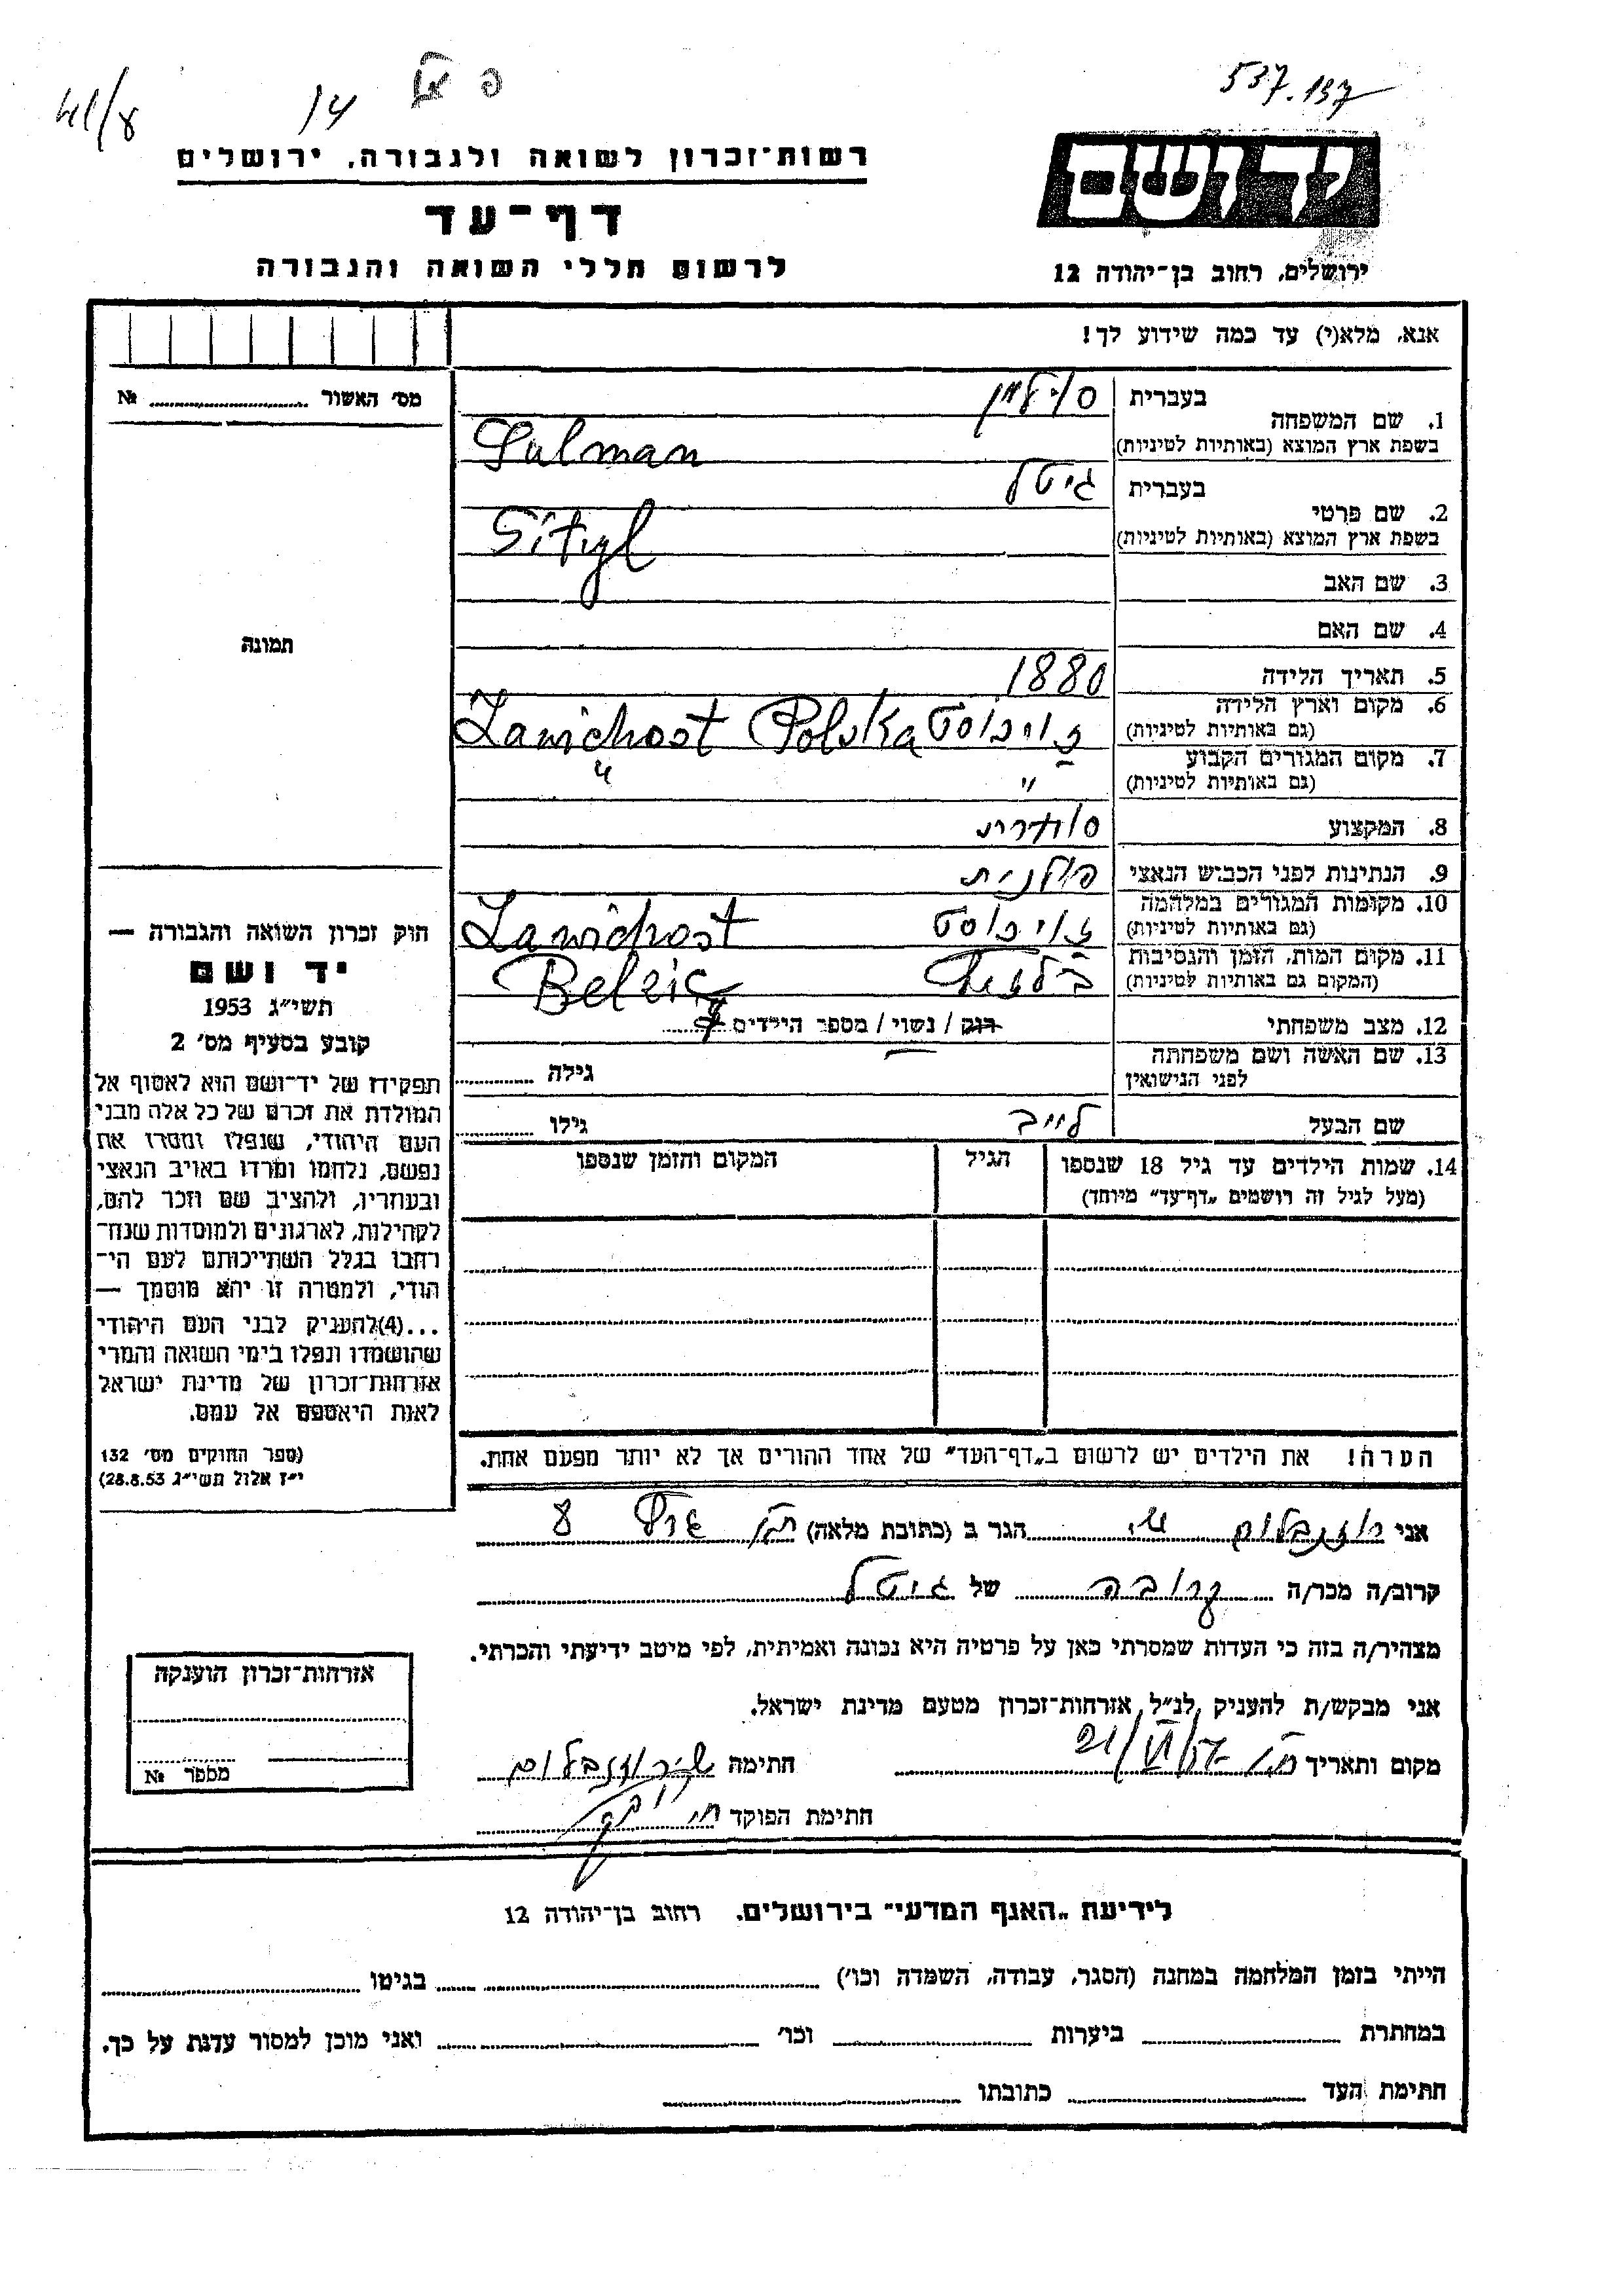 537.137
41/8
14
יד ושם
ירושלים, רחוב בן־יהודה 12
רשות־זכרון לשואה ולגבורה, ירושלים
דף־עד
לרשום חללי השואה והגבורה
אנא, מלא(י) עד כמה שידוע לך!
מס׳ האשור № ....................
תמונה
1. שם המשפחה
בעברית
בשפת ארץ המוצא (באותיות לטיניות)
Sulman
2. שם פרטי
בעברית גיטל
בשפת ארץ המוצא (באותיות לטיניות)
Gityl
3. שם האב
4. שם האם
5. תאריך הלידה 1880
6. מקום וארץ הלידה
(גם באותיות לטיניות)
זויכוסט Zawichost Polska
7. מקום המגורים הקבוע
(גם באותיות לטיניות)
" "
8. המקצוע סוחרת
9. הנתינות לפני הכבוש הנאצי פולנית
10. מקומות המגורים במלחמה
(גם באותיות לטיניות)
זויכוסט Zawichost
11. מקום המות, הזמן והנסיבות
(המקום גם באותיות לטיניות)
Belzic
12. מצב משפחתי רוק / נשוי / מספר הילדים
13. שם האשה ושם משפחתה
לפני הנישואין
גילה
שם הבעל לייב גילו
14. שמות הילדים עד גיל 18 שנספו
(מעל לגיל זה רושמים „דף־עד״ מיוחד)
הגיל
המקום והזמן שנספו
הערה! את הילדים יש לרשום ב„דף־העד״ של אחד ההורים אך לא יותר מפעם אחת.
חוק זכרון השואה והגבורה —
יד ושם
תשי״ג 1953
קובע בסעיף מס׳ 2
תפקידו של יד־ושם הוא לאסוף אל
המולדת את זכרם של כל אלה מבני
העם היהודי, שנפלו ומסרו את
נפשם, נלחמו ומרדו באויב הנאצי
ובעוזריו, ולהציב שם וזכר להם,
לקהילות, לארגונים ולמוסדות שנח־
רבו בגלל השתייכותם לעם הי־
הודי, ולמטרה זו יהא מוסמך —
...(4)להעניק לבני העם היהודי
שהושמדו ונפלו בימי השואה והמרי
אזרחות־זכרון של מדינת ישראל
לאות היאספם אל עמם.
(ספר החוקים מס׳ 132
י״ז אלול תשי״ג 28.8.53)
אני רוזנבלום הגר ב (כתובת מלאה) 8
קרוב/ה מכר/ה קרובה של גיטל
מצהיר/ה בזה כי העדות שמסרתי כאן על פרטיה היא נכונה ואמיתית, לפי מיטב ידיעתי והכרתי.
אני מבקש/ת להעניק לנ״ל אזרחות־זכרון מטעם מדינת ישראל.
מקום ותאריך חתימה רוזנבלום
חתימת הפוקד
אזרחות־זכרון הוענקה
מספר №
לידיעת „האגף המדעי״ בירושלים. רחוב בן־יהודה 12
הייתי בזמן המלחמה במחנה (הסגר, עבודה, השמדה וכו׳) בגיטו
במחתרת ביערות וכו׳ ואני מוכן למסור עדות על כך.
חתימת העד כתובתו